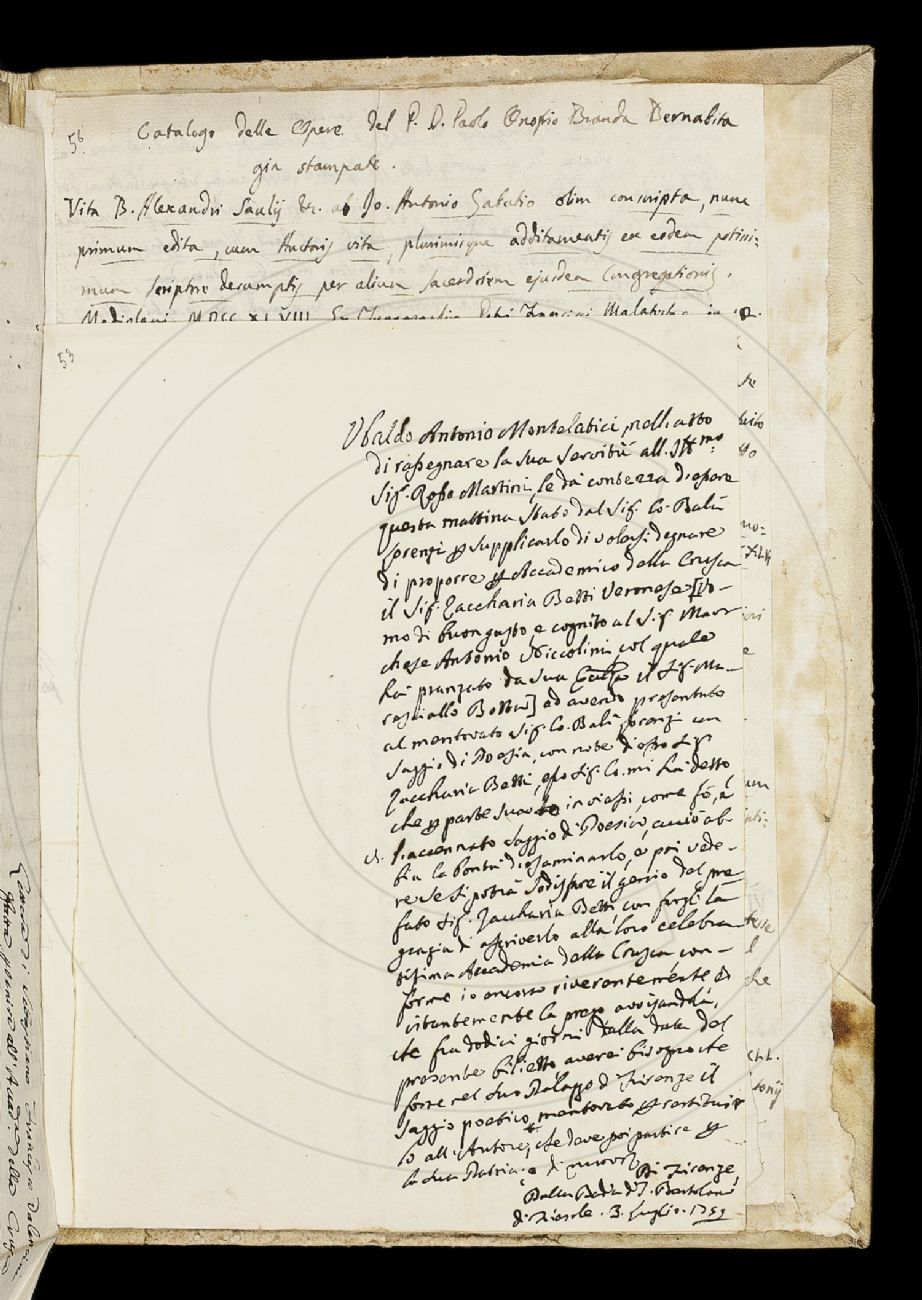 56
Catalogo delle Opere del P. D. Paolo Onofrio Branda Bernabita
gia stampate.
Vita B. Alexandri Saulij &c. ab Jo. Antonio Gabutio olim conscripta, nunc
primum edita, cum Auctoris vita, plurimisque additamentis ex eodem potissi:
mum scriptore decumptis per alium Sacerdotem ejusdem Congregationis.
Mediolani MDCCXLVIII Ex Malatestæ in
53
Ubaldo Antonio Montelatici, nell'atto
di rassegnare la sua servitù all' Ill.mo
Sig.r Rosso Martini, le dà contezza d'essere
questa mattina stato dal Sig.r Co. Balì
Lorenzi p supplicarlo di volersi degnare
di proporre p Accademico della Crusca
il Sig.r Zaccharia Betti Veronese [Uo-
mo di buon gusto, e cognito al Sig.r Mar-
chese Antonio Niccolini, col quale
hà pranzato da sua il Sig.r Ma-
resciallo Botta] ed avendo presentato
al mentovato Sig.r Co. Balì Lorenzi un
saggio di Poesia, con note d'esso Sig.r
Zaccharia Betti, esso Sig.r Co. mi hà detto
che p parte sua inviassi, come fò, a
V.S. l'accennato saggio di Poesia, acciò ab-
bia la bontà d'esaminarlo, e poi vede-
re se si potrà sodisfare il genio del pre-
fato Sig.r Zaccharia Betti con fargli la
grazia d'ascriverlo alla loro celebra-
tissima Accademia della Crusca con-
forme io ancora riverentemente
la prego avvisandola,
che fra dodici giorni dalla data del
presente biglietto averei bisogno che
fosse nel suo Palazzo di Firenze il
saggio poetico mentovato p restituir
lo all' Autore, che deve poi partire p
la sua Patria; e di nuovo
Di Firenze
Dalla Badia di S. Bartolomeo
di Fiesole. 3. Luglio. 1759